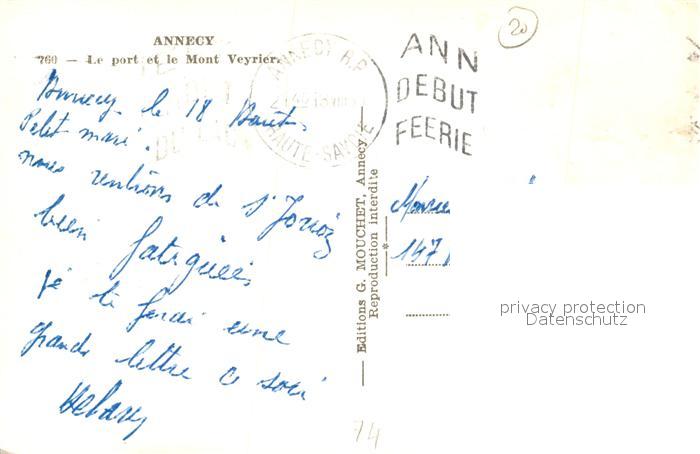 ANNECY
760 — Le port et le Mont Veyrier.
Annecy le 18 Août.
Petit mari.
nous rentrons de St Jorioz
bien fatiguées
je te ferai une
grande lettre ce soir
ANNECY R.P.
HAUTE-SAVOIE
ANN
DEBUT
FEERIE
20
Editions G. MOUCHET, Annecy
Reproduction interdite
147
privacy protection
Datenschutz
74